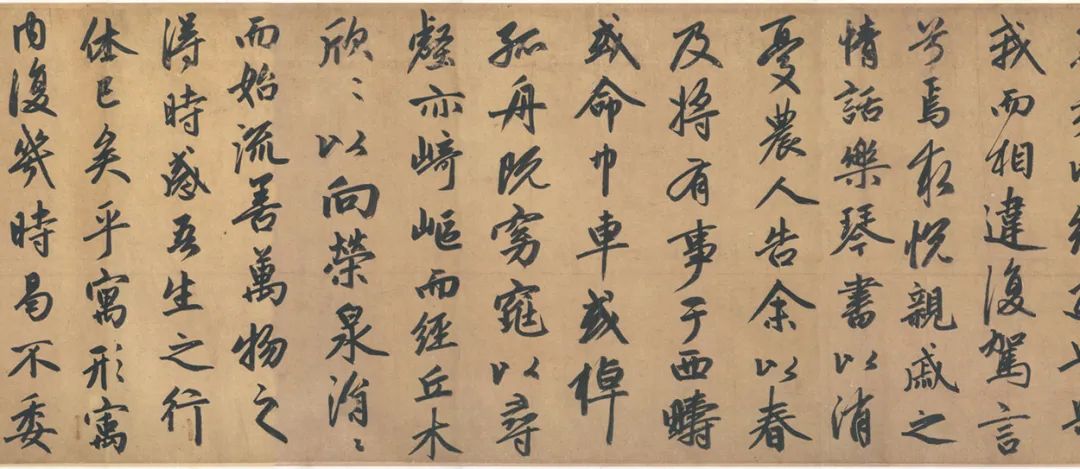 我而相違復駕言
兮焉求悅親戚之
情話樂琴書以消
憂農人告余以春
及將有事于西疇
或命巾車或棹
孤舟既窈窕以尋
壑亦崎嶇而經丘木
欣〻以向榮泉涓〻
而始流善萬物之
得時感吾生之行
休已矣乎寓形寓
内復幾時曷不委